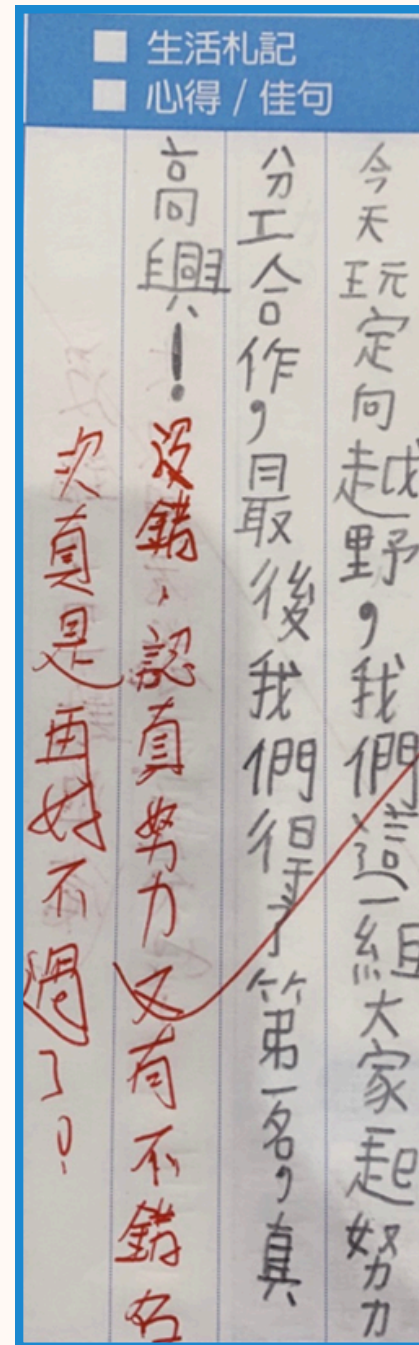 ■ 生活札記
■ 心得 / 佳句
今天玩定向越野，我們這一組大家一起努力
分工合作，最後我們得了第一名，真
高興！沒錯，認真努力又有不錯名
次真是再好不過了！